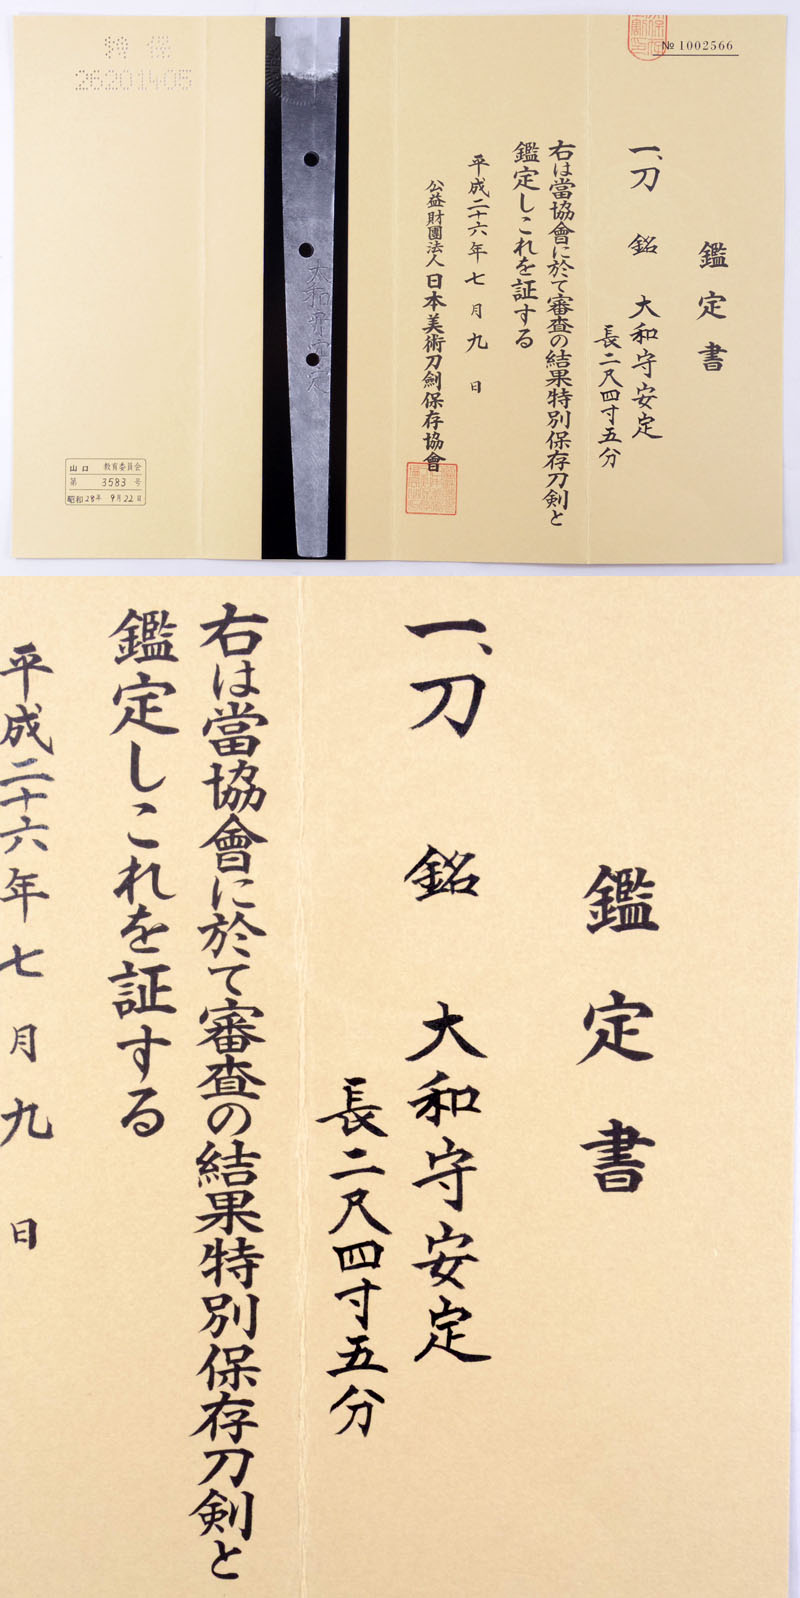 № 1002566
鑑定書
一、刀 銘 大和守安定
長二尺四寸五分
右は當協會に於て審査の結果特別保存刀剣と
鑑定しこれを証する
平成二十六年七月九日
公益財團法人 日本美術刀劍保存協會
大和守安定
特保
26201405
山口 教育委員会
第 3583 号
昭和28年 9月22日
鑑定書
一、刀 銘 大和守安定
長二尺四寸五分
右は當協會に於て審査の結果特別保存刀剣と
鑑定しこれを証する
平成二十六年七月九日